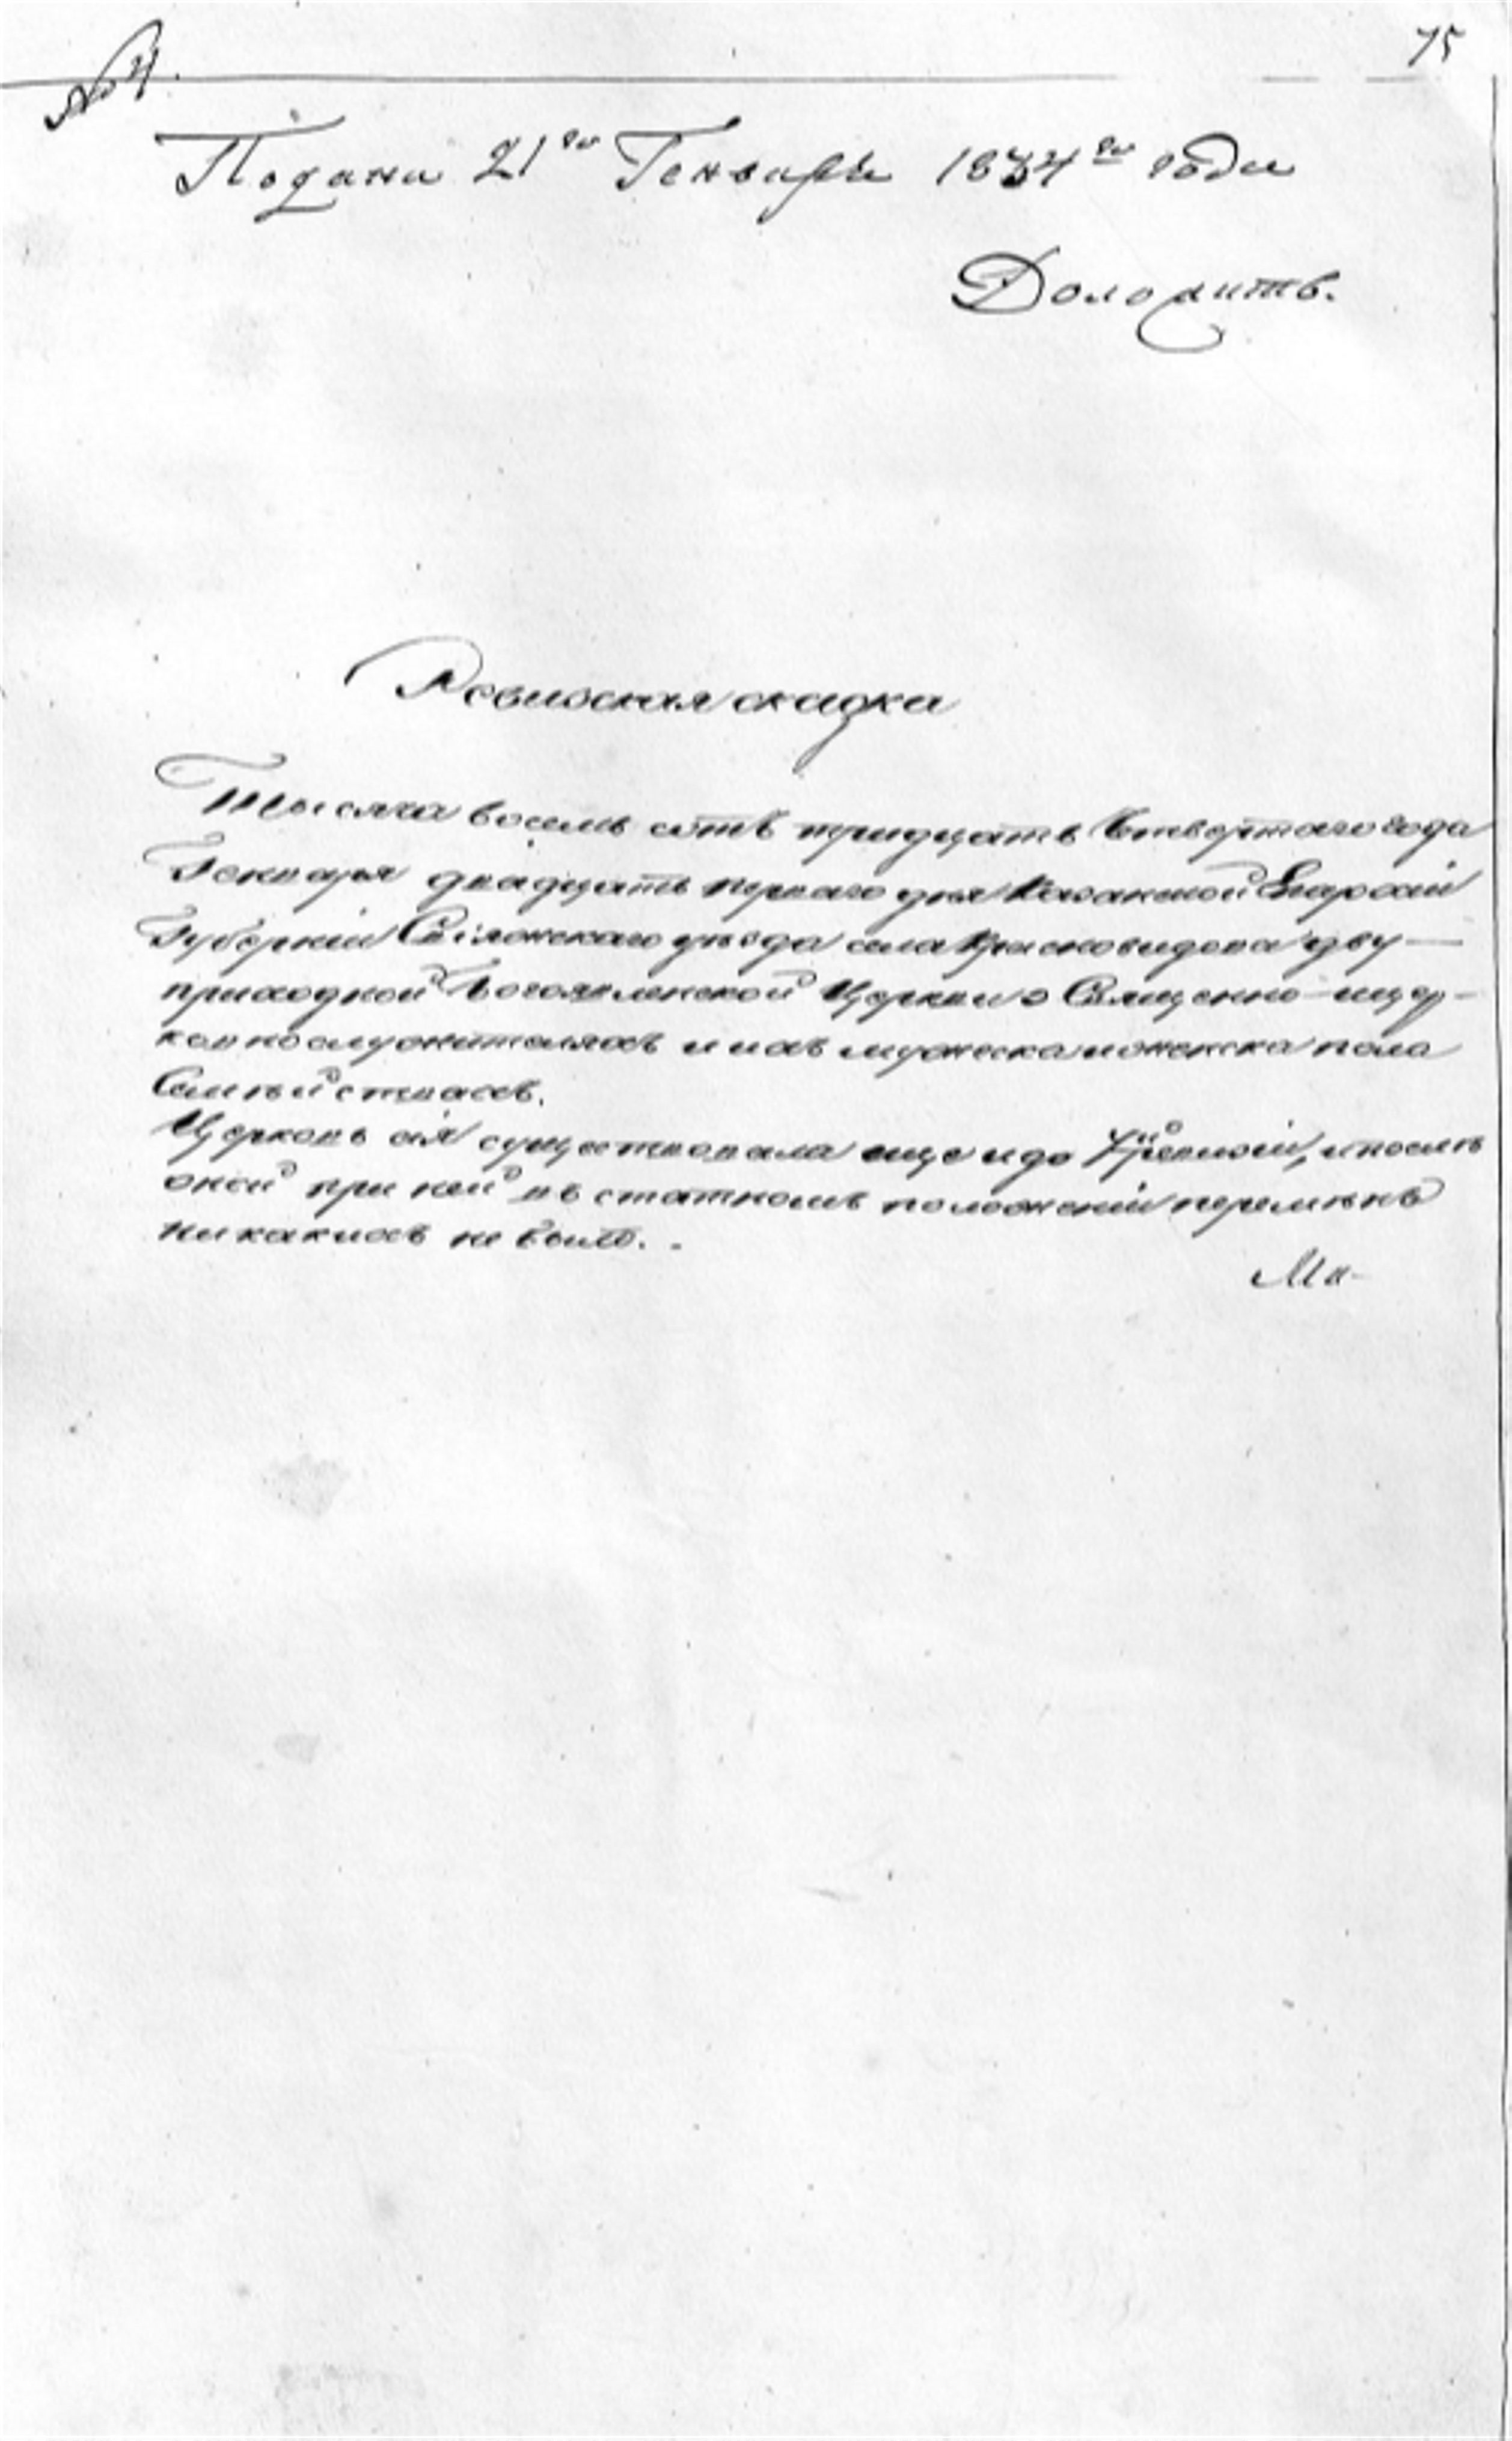 75
№ 4.
Подана 21го Генваря 1834го года
Доложить.
Ревизская сказка
Тысяча восемь сотъ тридцать Четвертаго года
Генваря двадцать перваго дня Казанской Епархіи
Губерніи Свіяжскаго уѣзда села Красновидова дву-
приходной Богоявленской Церкви о Священно-и цер-
ковнослужителяхъ и ихъ мужеска и женска пола
Семѣйствахъ.
Церковь сія существовала еще и до 7й ревизіи, и послѣ
оной при ней въ статномъ положеніи перемѣнъ
никакихъ не было. -